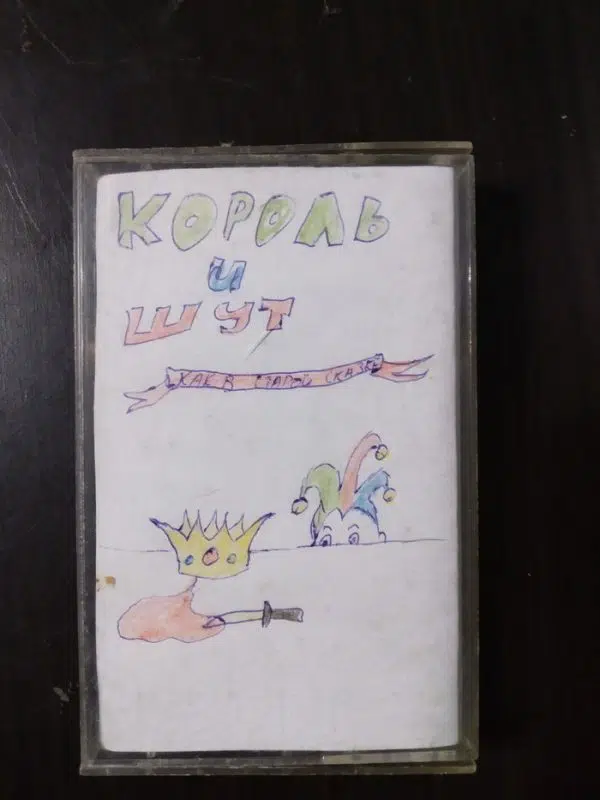 КОРОЛЬ
И
ШУТ
КАК В СТАРОЙ СКАЗКЕ